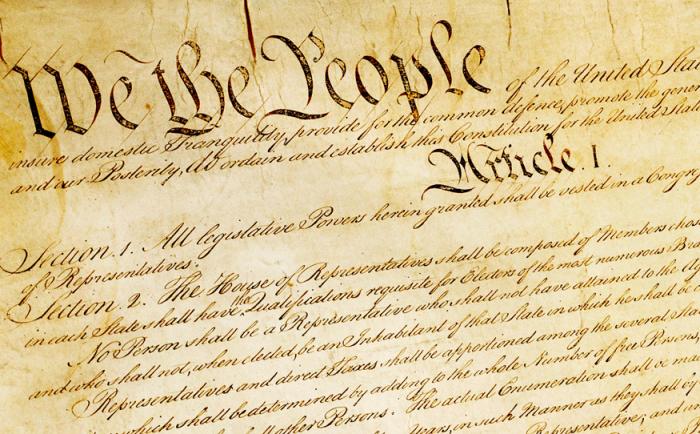 We the People of the United Stat
insure domestic Tranquility, provide for the common defence, promote the gener
and our Posterity, do ordain and establish this Constitution for the United Stat
Article. I.
Section. 1. All legislative Powers herein granted shall be vested in a Congre
of Representatives.
Section. 2. The House of Representatives shall be composed of Members chose
in each State shall have the Qualifications requisite for Electors of the most numerous Bra
No Person shall be a Representative who shall not have attained to the Ag
and who shall not, when elected, be an Inhabitant of that State in which he shall be c
Representatives and direct Taxes shall be apportioned among the several Sta
which shall be determined by adding to the whole Number of free Persons,
other Persons. The actual Enumeration shall be ma
Years, in such Manner as they shall
Representative; and